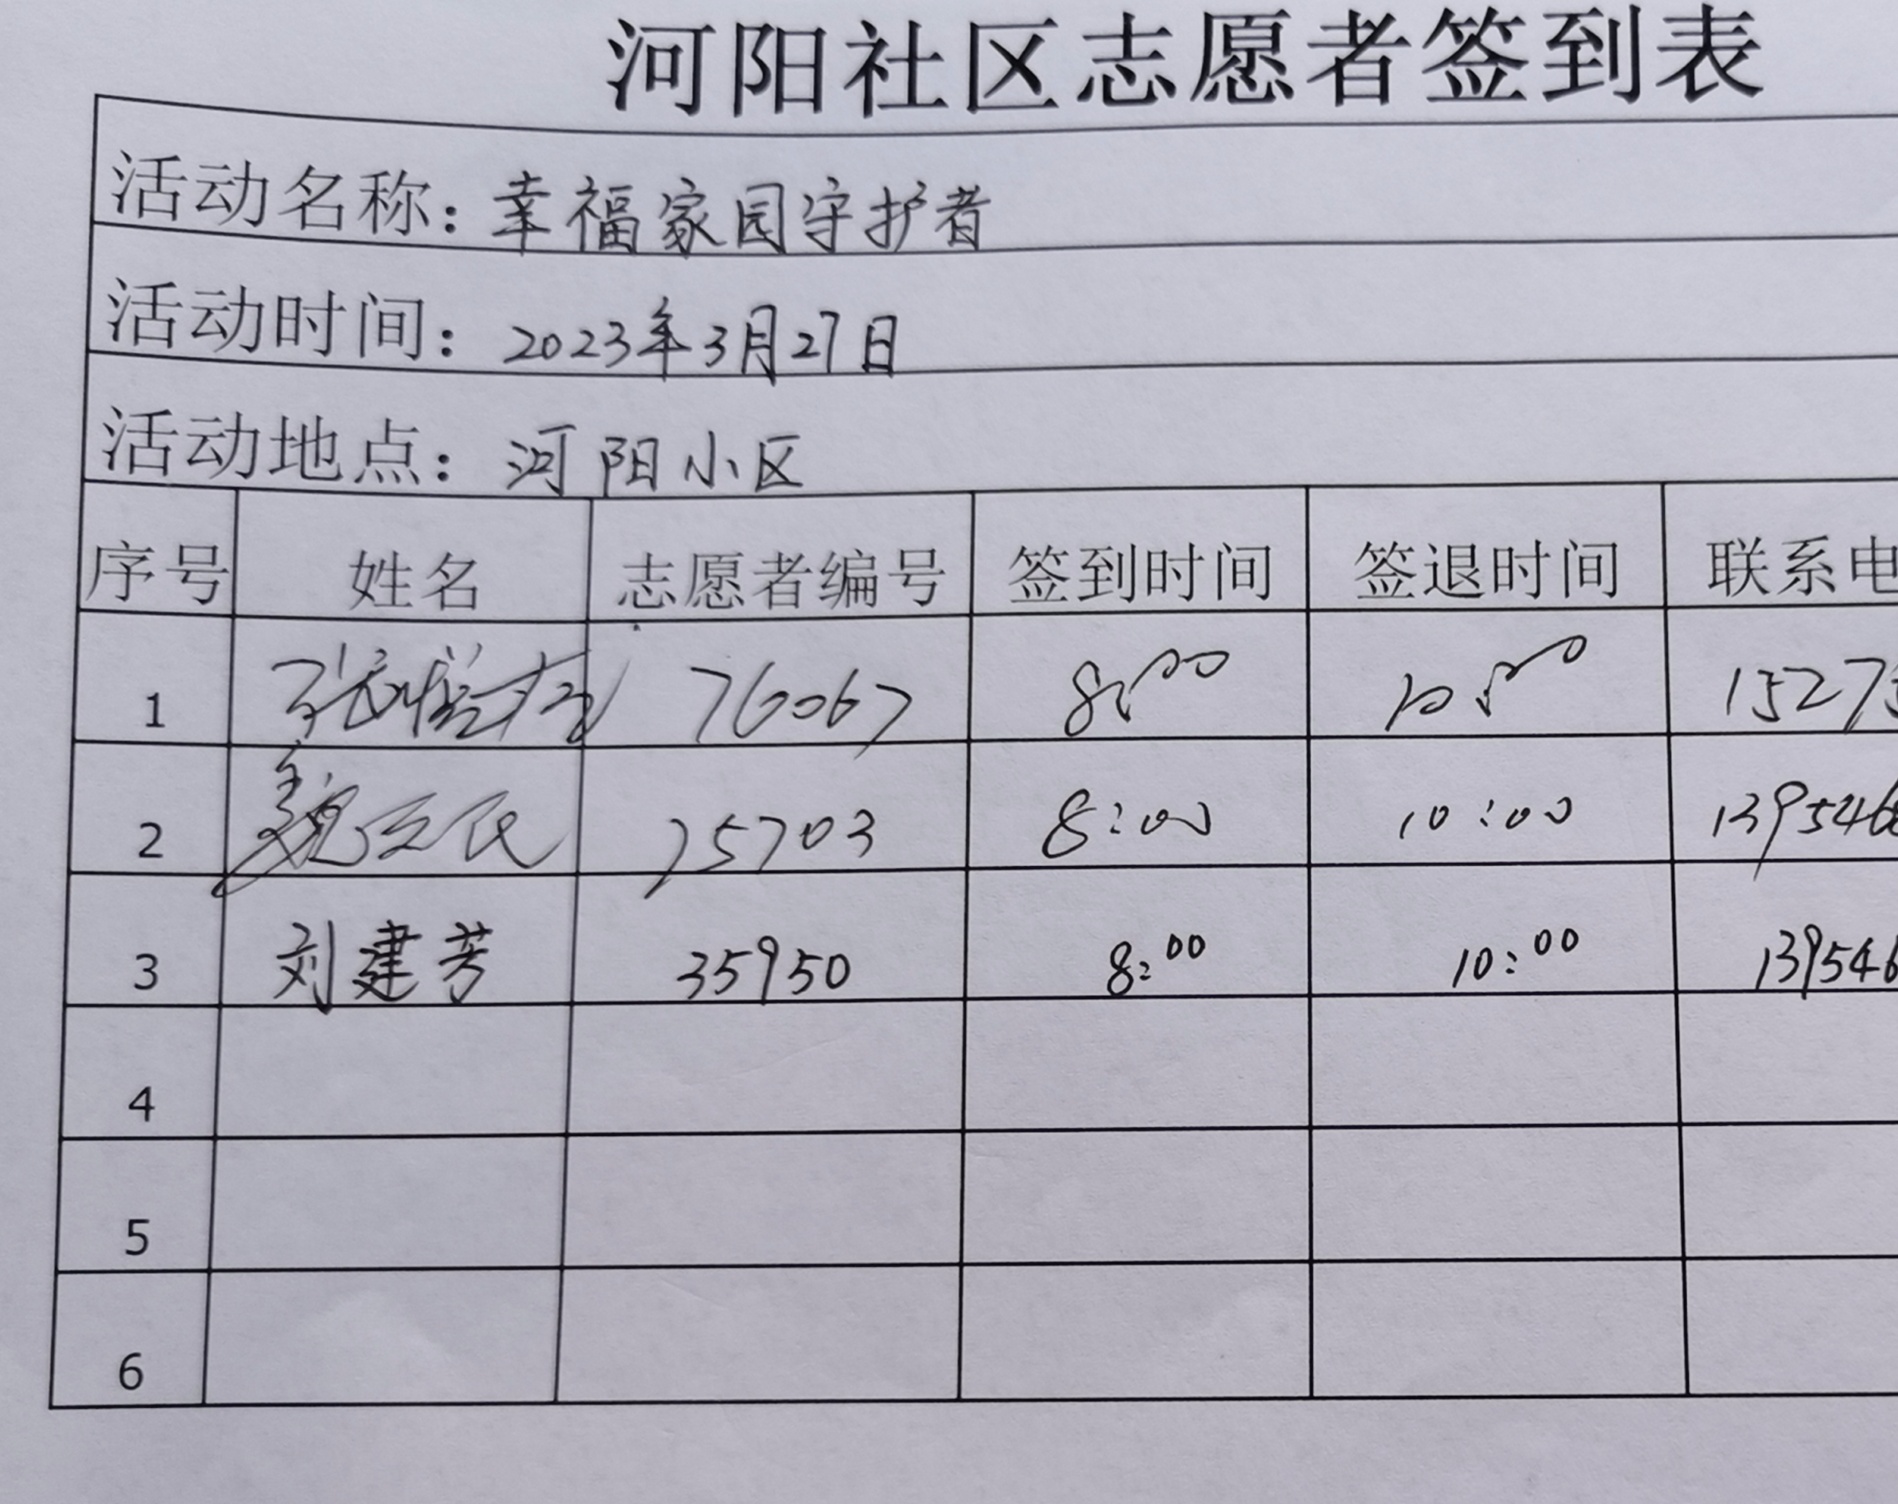 河阳社区志愿者签到表
活动名称：幸福家园守护者
活动时间：2023年3月27日
活动地点：河阳小区
序号 姓名 志愿者编号 签到时间 签退时间 联系电
1 76067 8:00 10:00 15273
2 魏立民 75703 8:00 10:00 139546
3 刘建芳 35950 8:00 10:00 139546
4
5
6